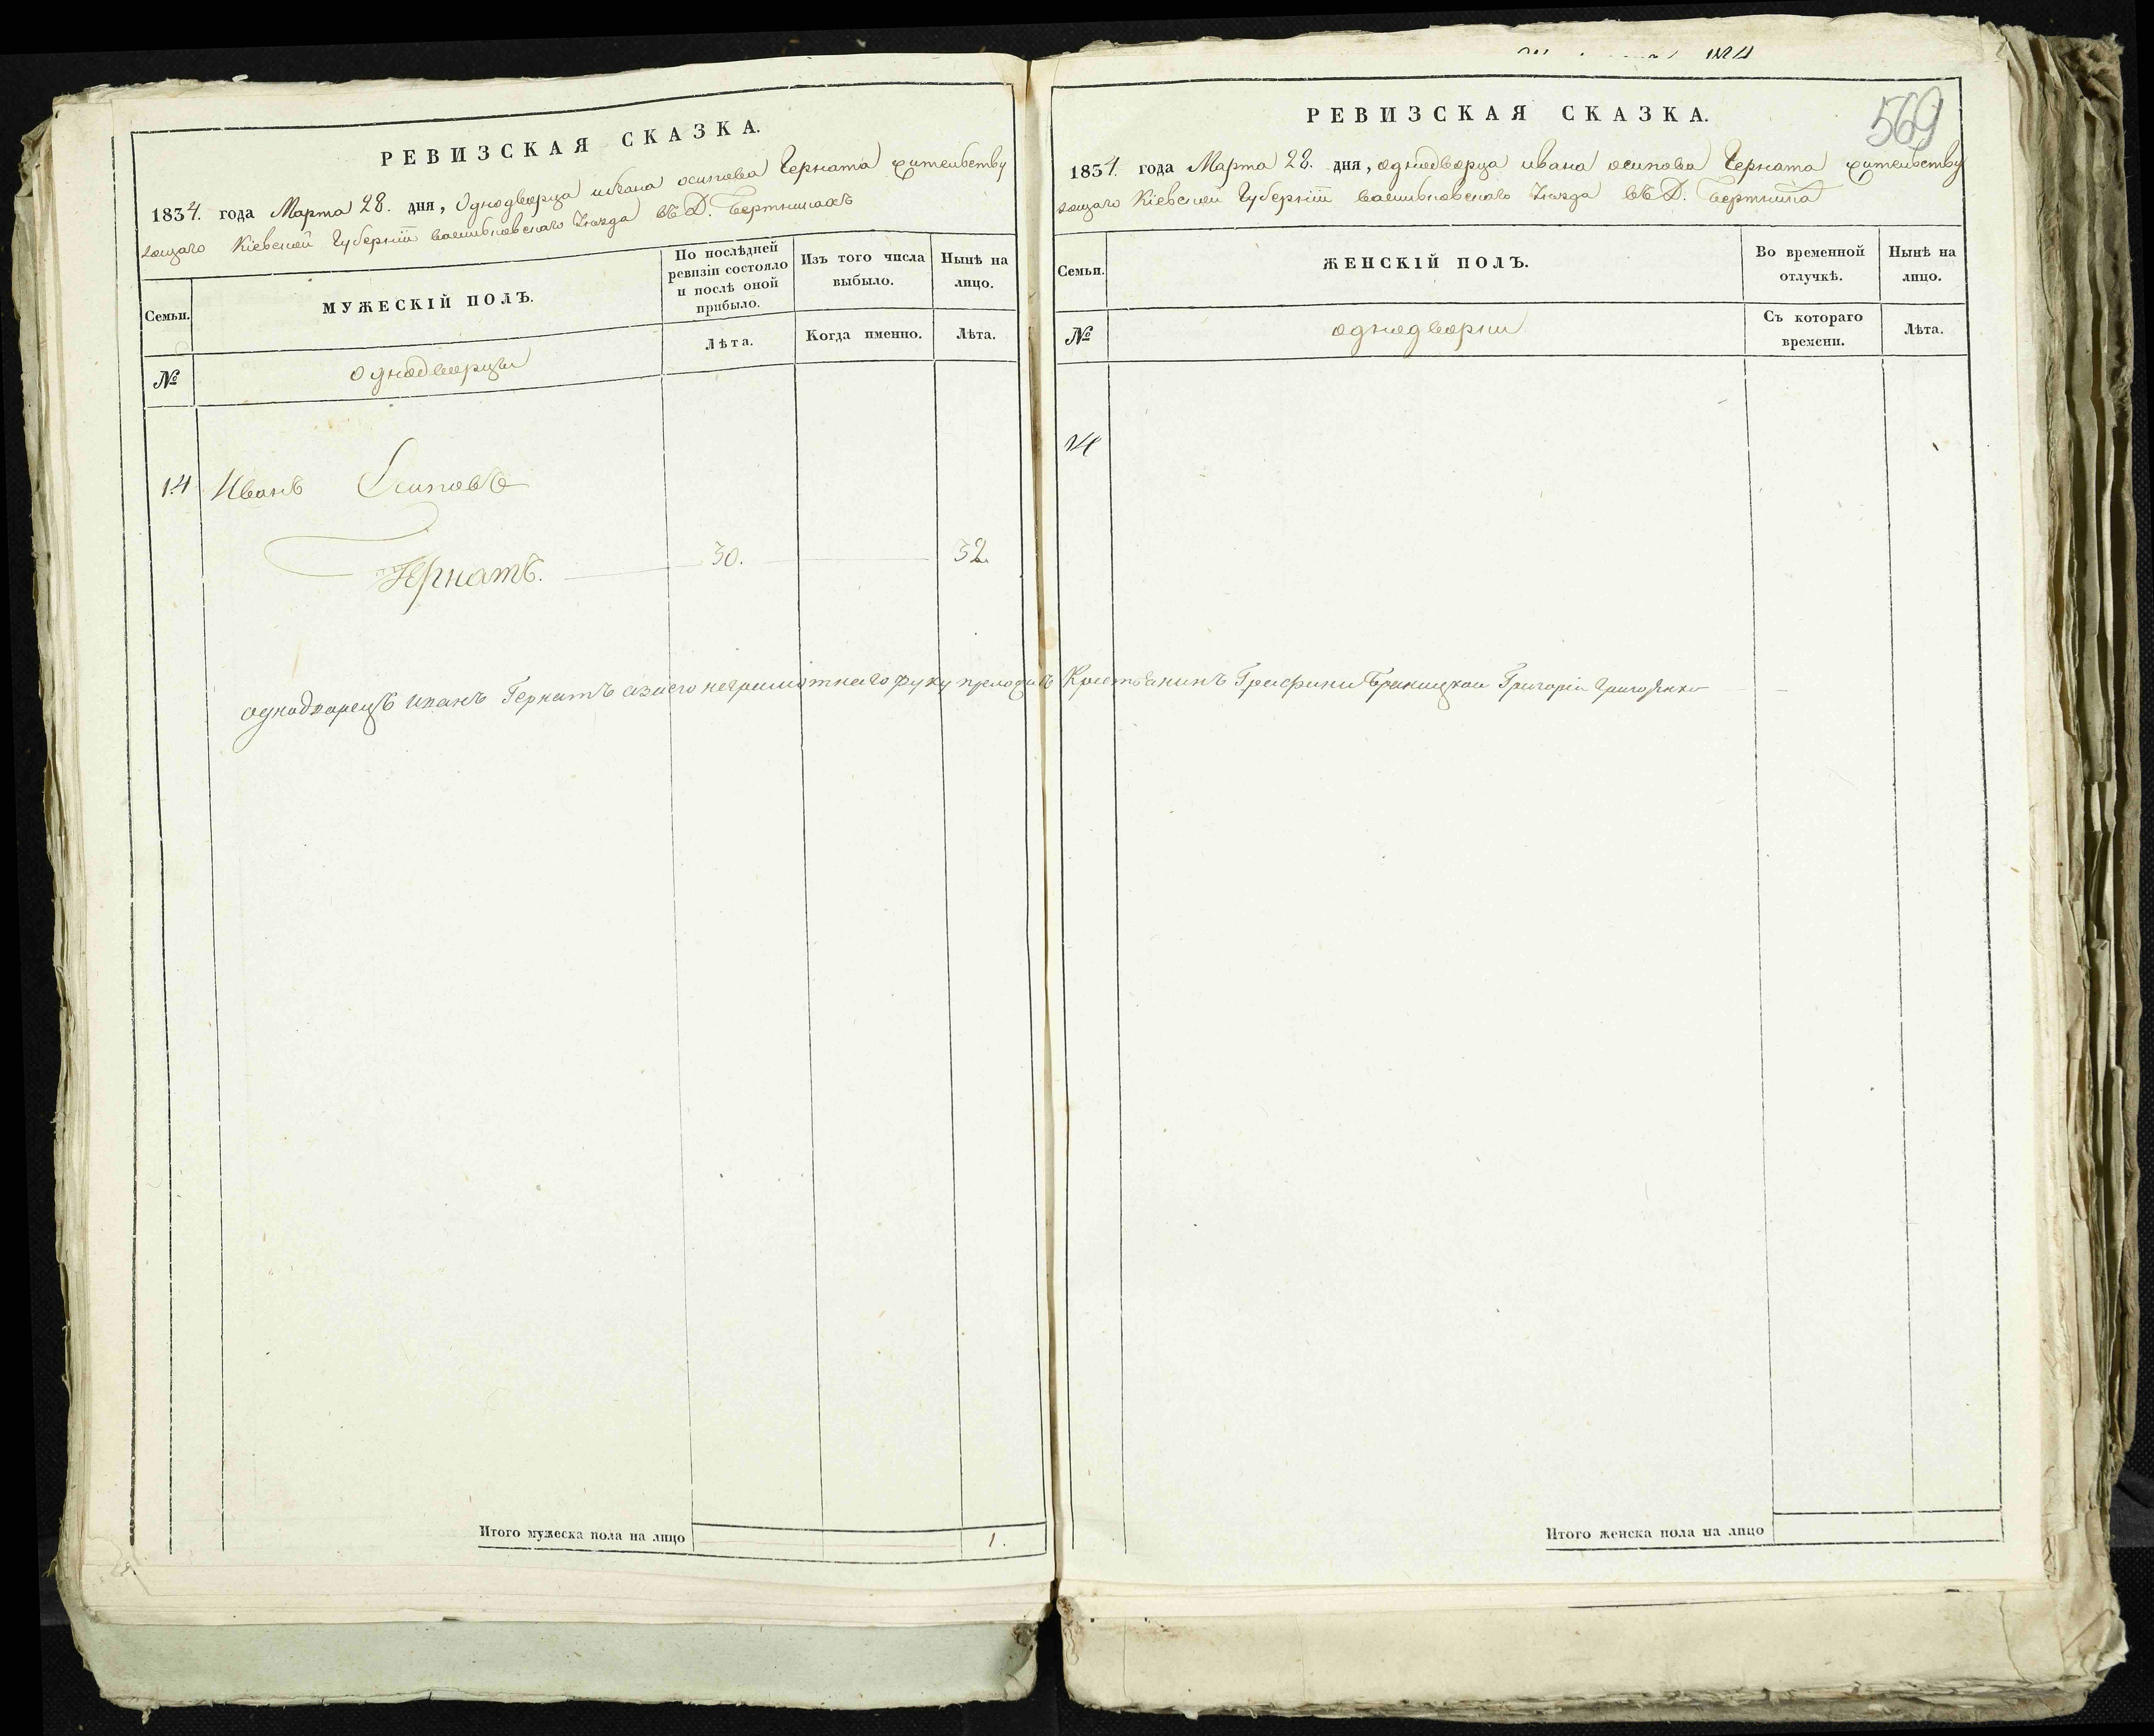 РЕВИЗСКАЯ СКАЗКА.
1834. года Марта 28. дня, Однодворца ивана осипова Герната жительству
ющаго Кіевской Губерніи васильковскаго Уѣзда въ Д.
Семьи.
МУЖЕСКІЙ ПОЛЪ.
По послѣдней ревизіи состояло и послѣ оной прибыло.
Изъ того числа выбыло.
Нынѣ на лицо.
№
однодворцы
Лѣта.
Когда именно.
Лѣта.
14 Иванъ Осиповъ
Гернатъ. 30. 32.
однодворецъ иванъ Гернатъ азаего неграмотнаго руку приложилъ Крестьянинъ Графини Браницкой Григорій
Итого мужеска пола на лицо 1.
569
РЕВИЗСКАЯ СКАЗКА.
1834. года Марта 28. дня, однодворца ивана осипова Герната жительству
ющаго Кіевской Губерніи васильковскаго Уѣзда въ Д.
Семьи.
ЖЕНСКІЙ ПОЛЪ.
Во временной отлучкѣ.
Нынѣ на лицо.
№
однодворки
Съ котораго времени.
Лѣта.
14
Итого женска пола на лицо